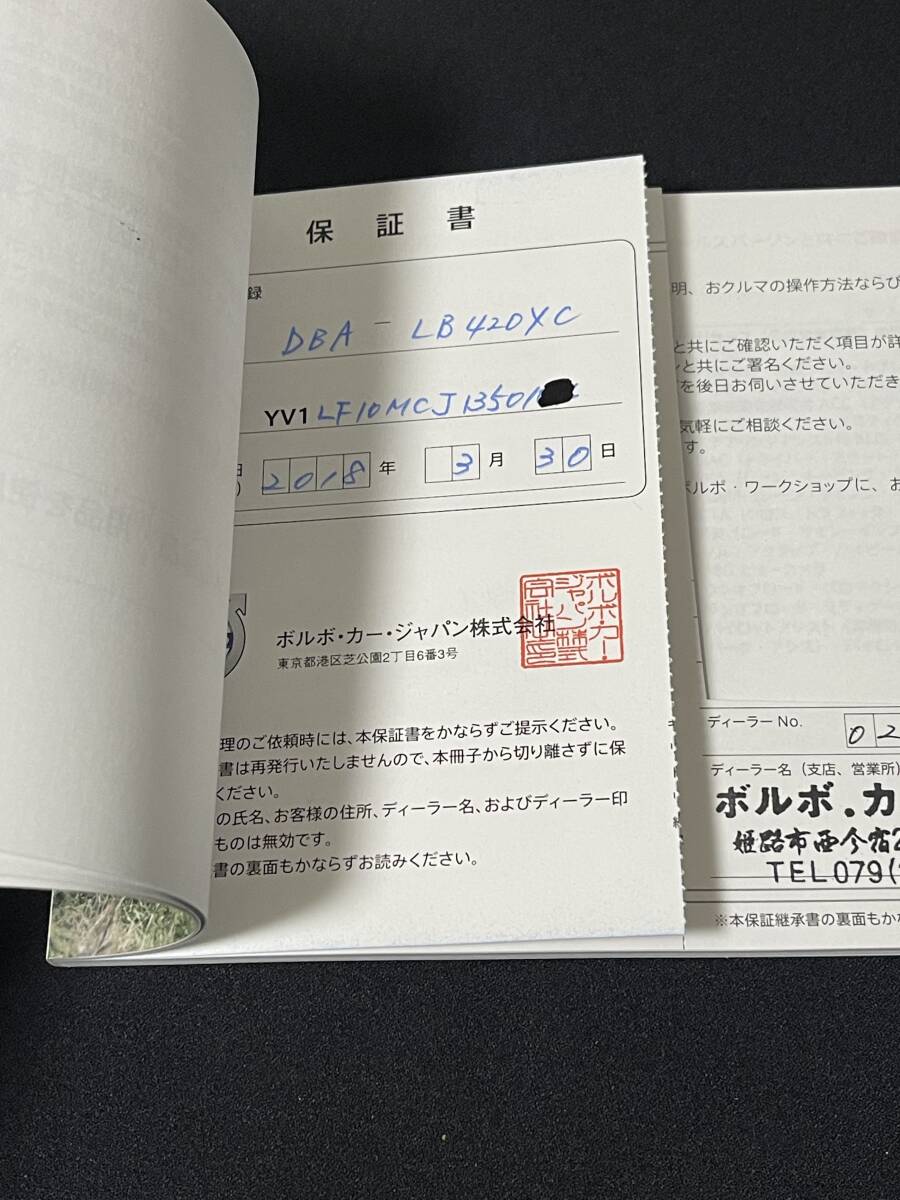 保証書
録
DBA - LB420XC
YV1 LF10MCJ13501
日
2018年 3月 30日
ボルボ・カー・ジャパン株式会社
東京都港区芝公園2丁目6番3号
ボルボ・カー・ジャパン株式会社
理のご依頼時には、本保証書をかならずご提示ください。
書は再発行いたしませんので、本冊子から切り離さずに保
ください。
の氏名、お客様の住所、ディーラー名、およびディーラー印
ものは無効です。
書の裏面もかならずお読みください。
明、おクルマの操作方法ならび
と共にご確認いただく項目が詳
ンと共にご署名ください。
を後日お伺いさせていただき
気軽にご相談ください。
す。
ボルボ・ワークショップに、お
ディーラー No. 02
ディーラー名（支店、営業所）
ボルボ.カ
姫路市西今宿2
TEL079(
※本保証継承書の裏面もかな